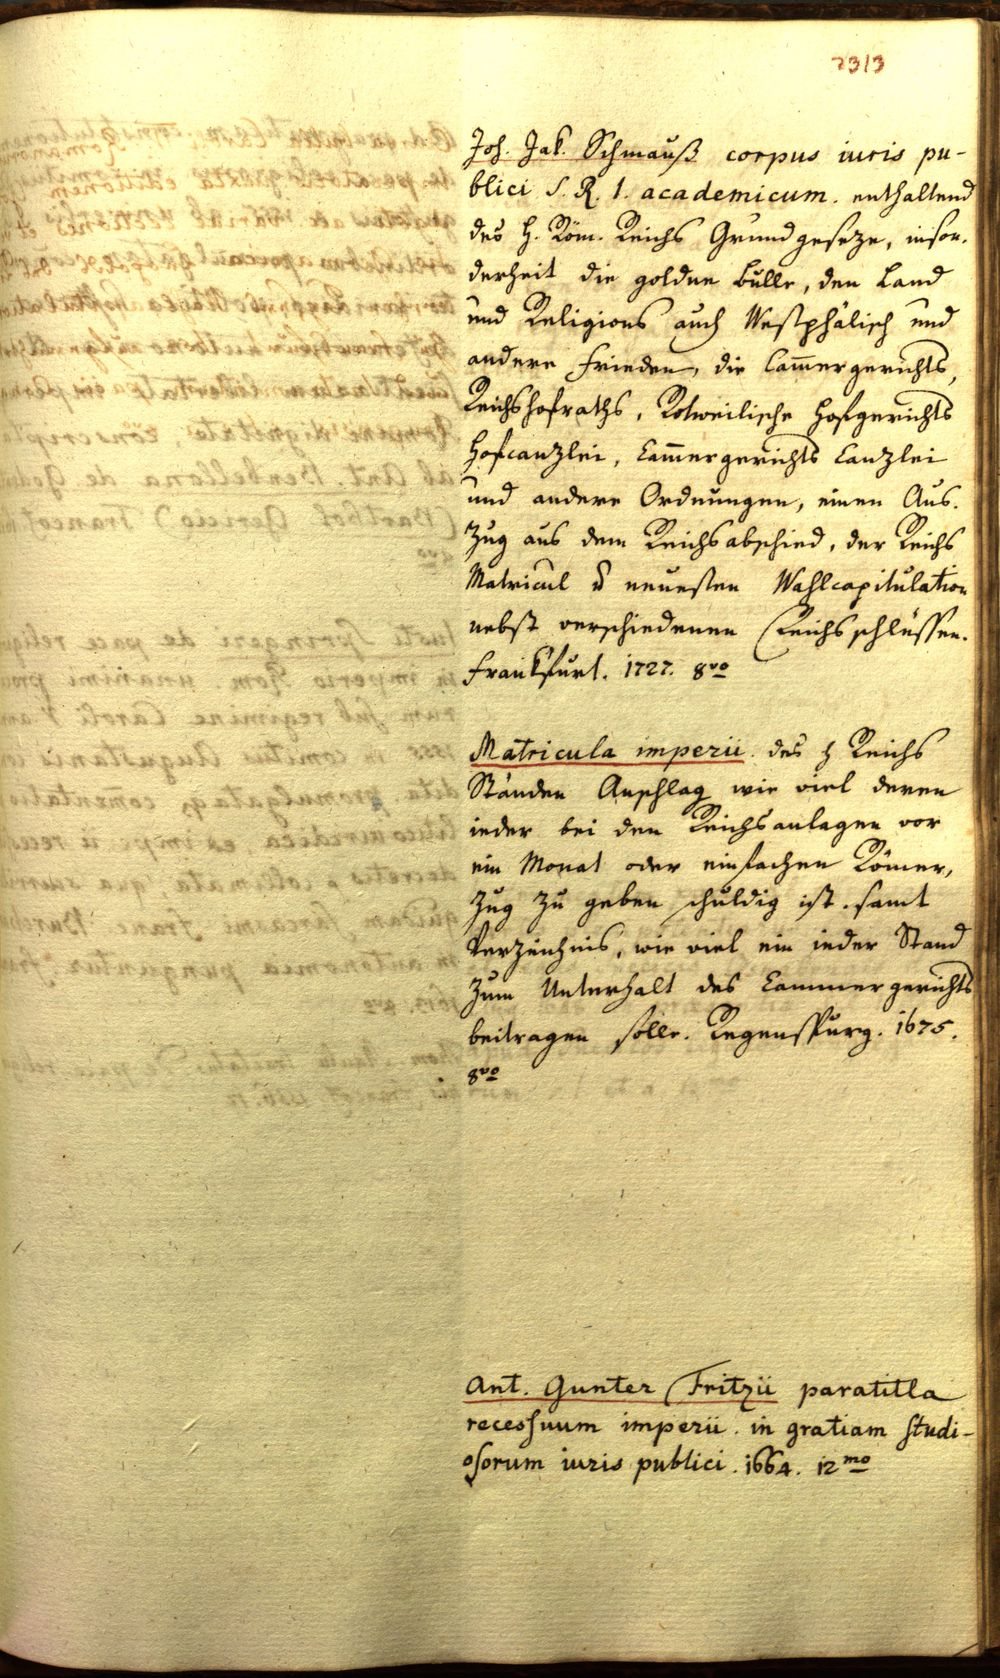 2313
Joh. Jak. Schmauß corpus iuris pu-
blici S. R. I. academicum. enthaltend
des H. Röm. Reichs Grundgeseze, inson-
derheit die goldne Bulle, den Land
und Religions auch Westphälisch und
andere Frieden, die Cam̄ergerichts,
Reichshofraths, Rotweilische Hofgerichts
Hofcanzlei, Cam̄ergerichts Canzlei
und andere Ordnungen, einen Aus-
zug aus dem Reichsabschied, der Reichs
Matricul u neuesten Wahlcapitulation
nebst verschiedenen Reichsschlüssen.
Frankfurt. 1727. 8vo
Matricula imperii. des H Reichs
Ständen Anschlag wie viel deren
ieder bei den Reichsanlagen vor
ein Monat oder einfachen Römer,
zug zu geben schuldig ist. samt
Verzeichnis, wie viel ein ieder Stand
zum Unterhalt des Cammergerichts
beitragen solle. Regenspurg. 1675.
8vo
Ant. Gunter Fritzii paratitla
recessuum imperii. in gratiam studi-
osorum iuris publici. 1664. 12mo